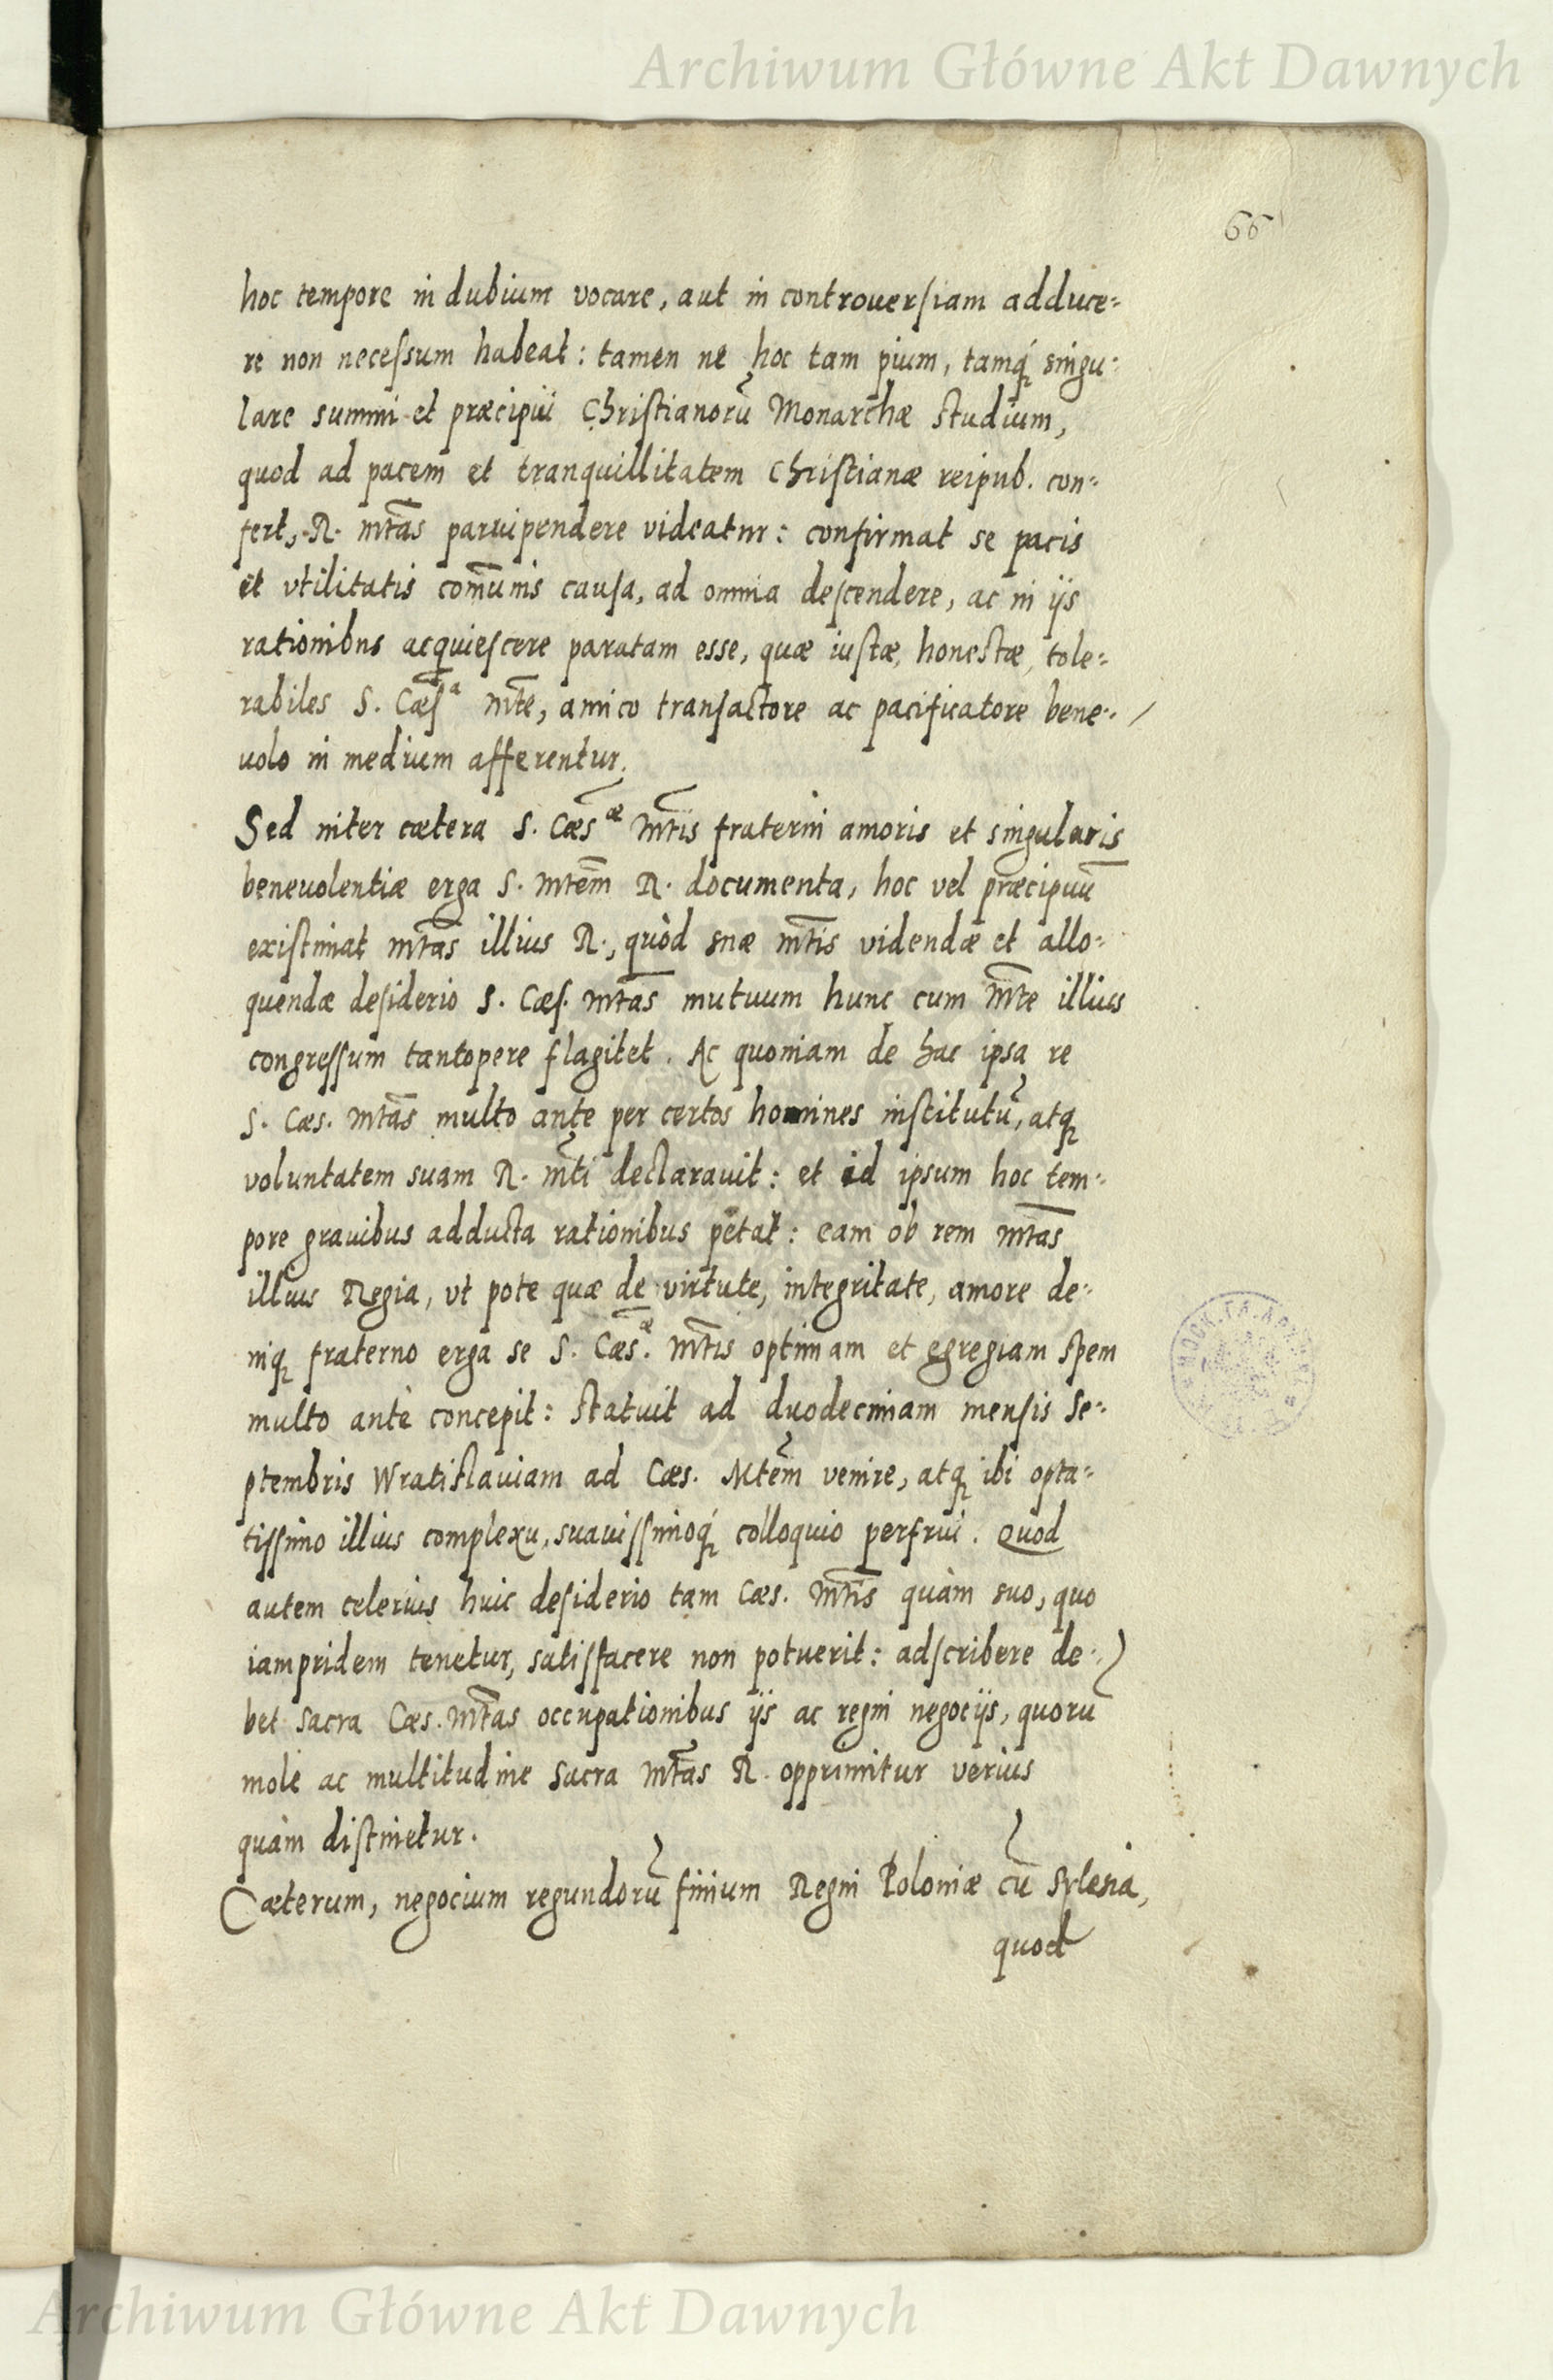 Archiwum Główne Akt Dawnych
66
hoc tempore in dubium vocare, aut in controuersiam adduce-
re non necessum habeat: tamen ne hoc tam pium, tamq́ singu-
lare summi et præcipui Christianorũ Monarchæ studium,
quod ad pacem et tranquillitatem Christianæ reipub. con-
fert, R. Mtãs paruipendere videatur: confirmat se pacis
et vtilitatis com̃unis causa, ad omnia descendere, ac in ijs
rationibus acquiescere paratam esse, quæ iustæ, honestæ, tole-
rabiles S. Cæsᵃ Mtẽ, amico transactore ac pacificatore bene-
uolo in medium afferentur.
Sed inter cætera S. Cæsᵆ Mtĩs fraterni amoris et singularis
beneuolentiæ erga S. Mtẽm R. documenta, hoc vel præcipuũ
existimat Mtãs illius R., quòd suæ Mtĩs videndæ et allo-
quendæ desiderio S. Cæs. Mtãs mutuum hunc cum Mtẽ illius
congressum tantopere flagitet. Ac quoniam de hac ipsa re
S. Cæs. Mtãs multo ante per certos homines institutũ, atq
voluntatem suam R. Mtĩ declarauit: et id ipsum hoc tem-
pore grauibus adducta rationibus petat: eam ob rem Mtãs
illius Regia, vt pote quæ de virtute, integritate, amore de-
niq fraterno erga se S. Cæsᵆ. Mtĩs optimam et egregiam spem
multo antè concepit: statuit ad duodecimam mensis Se-
ptembris Wratislauiam ad Cæs. Mtẽm venire, atq ibi opta-
tissimo illius complexu, suauissimoq́ colloquio perfrui. Quod
autem celerius huic desiderio tam Cæs. Mtĩs quàm suo, quo
iampridem tenetur, satisfacere non potuerit: adscribere de-
bet sacra Cæs. Mtãs occupationibus ijs ac regni negocijs, quorũ
mole ac multitudine sacra Mtãs R. opprimitur verius
quàm distinetur.
Cæterum, negocium regundorũ finium Regni Poloniæ cũ Sylesia,
quod
Archiwum Główne Akt Dawnych